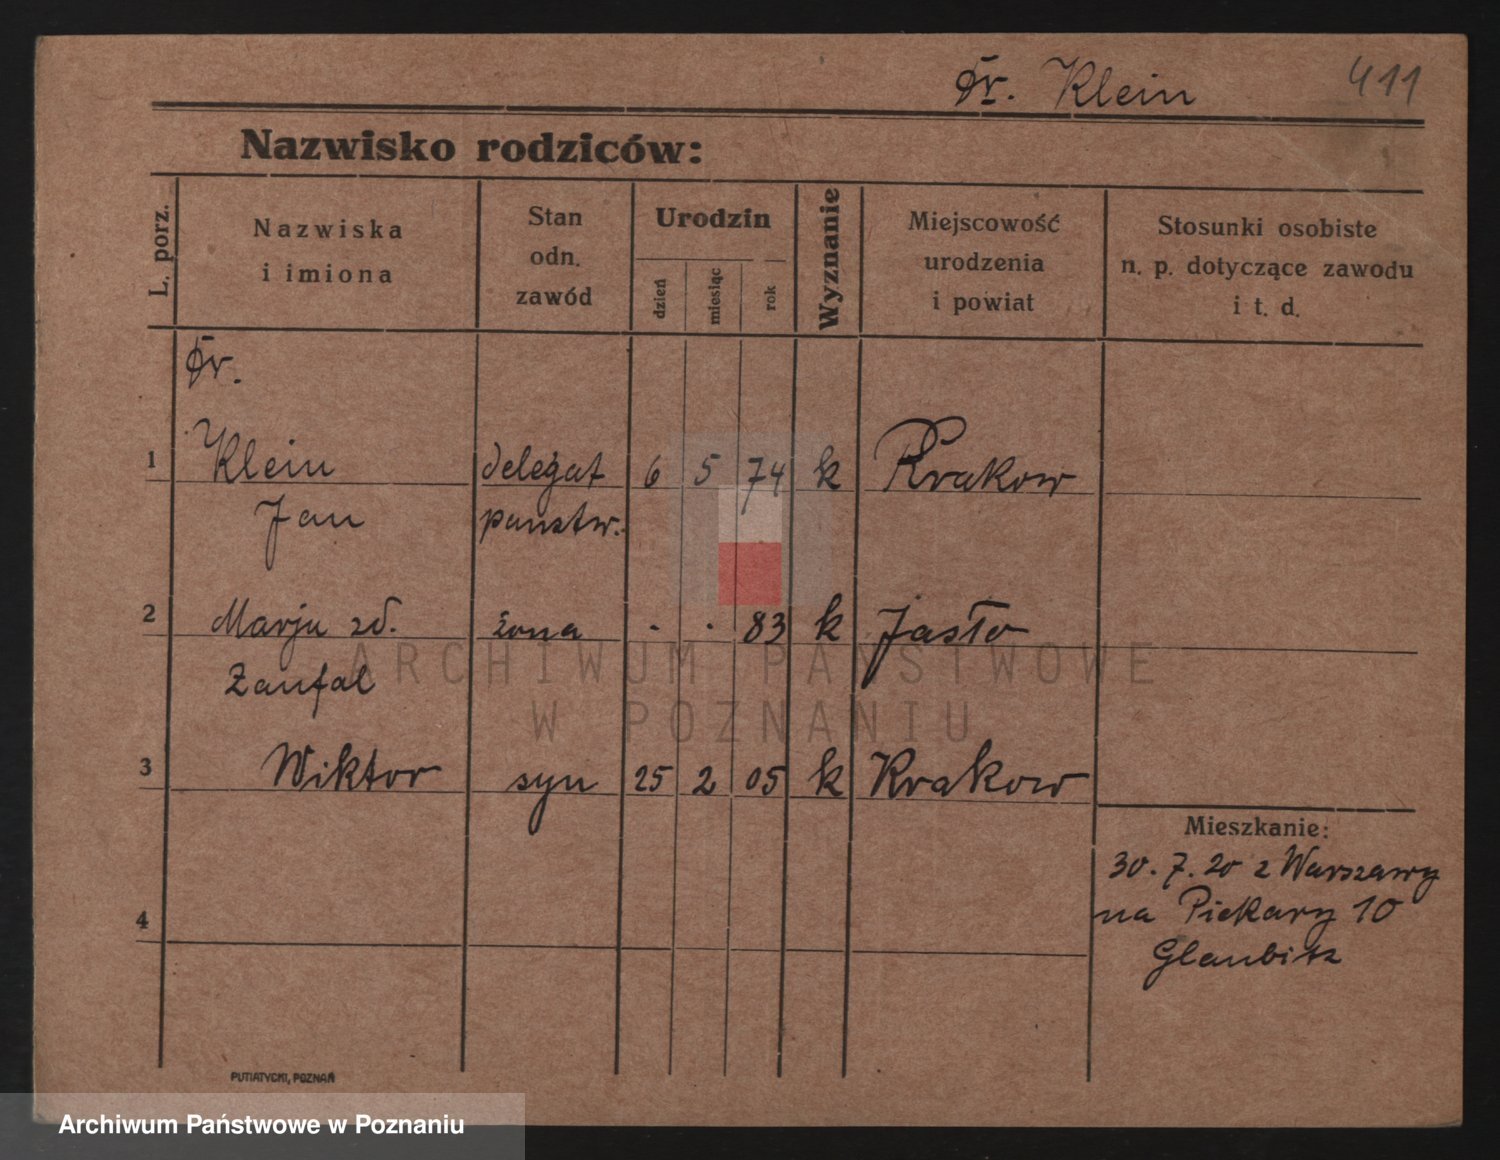 Dr. Klein 411
Nazwisko rodziców:
L. porz.
Nazwiska
i imiona
Stan
odn.
zawód
Urodzin
dzień
miesiąc
rok
Wyznanie
Miejscowość
urodzenia
i powiat
Stosunki osobiste
n. p. dotyczące zawodu
i t. d.
Dr.
1 Klein delegat 6 5 74 k Krakow
Jan panstw.
2 Marja zd. żona . . 83 k Jasło
Zaufal
3 Wiktor syn 25 2 05 k Krakow
Mieszkanie:
30. 7. 20 z Warszawy
na Piekary 10
4
Glaubitz
PUTIATYCKI, POZNAŃ
ARCHIWUM PAŃSTWOWE
W POZNANIU
Archiwum Państwowe w Poznaniu